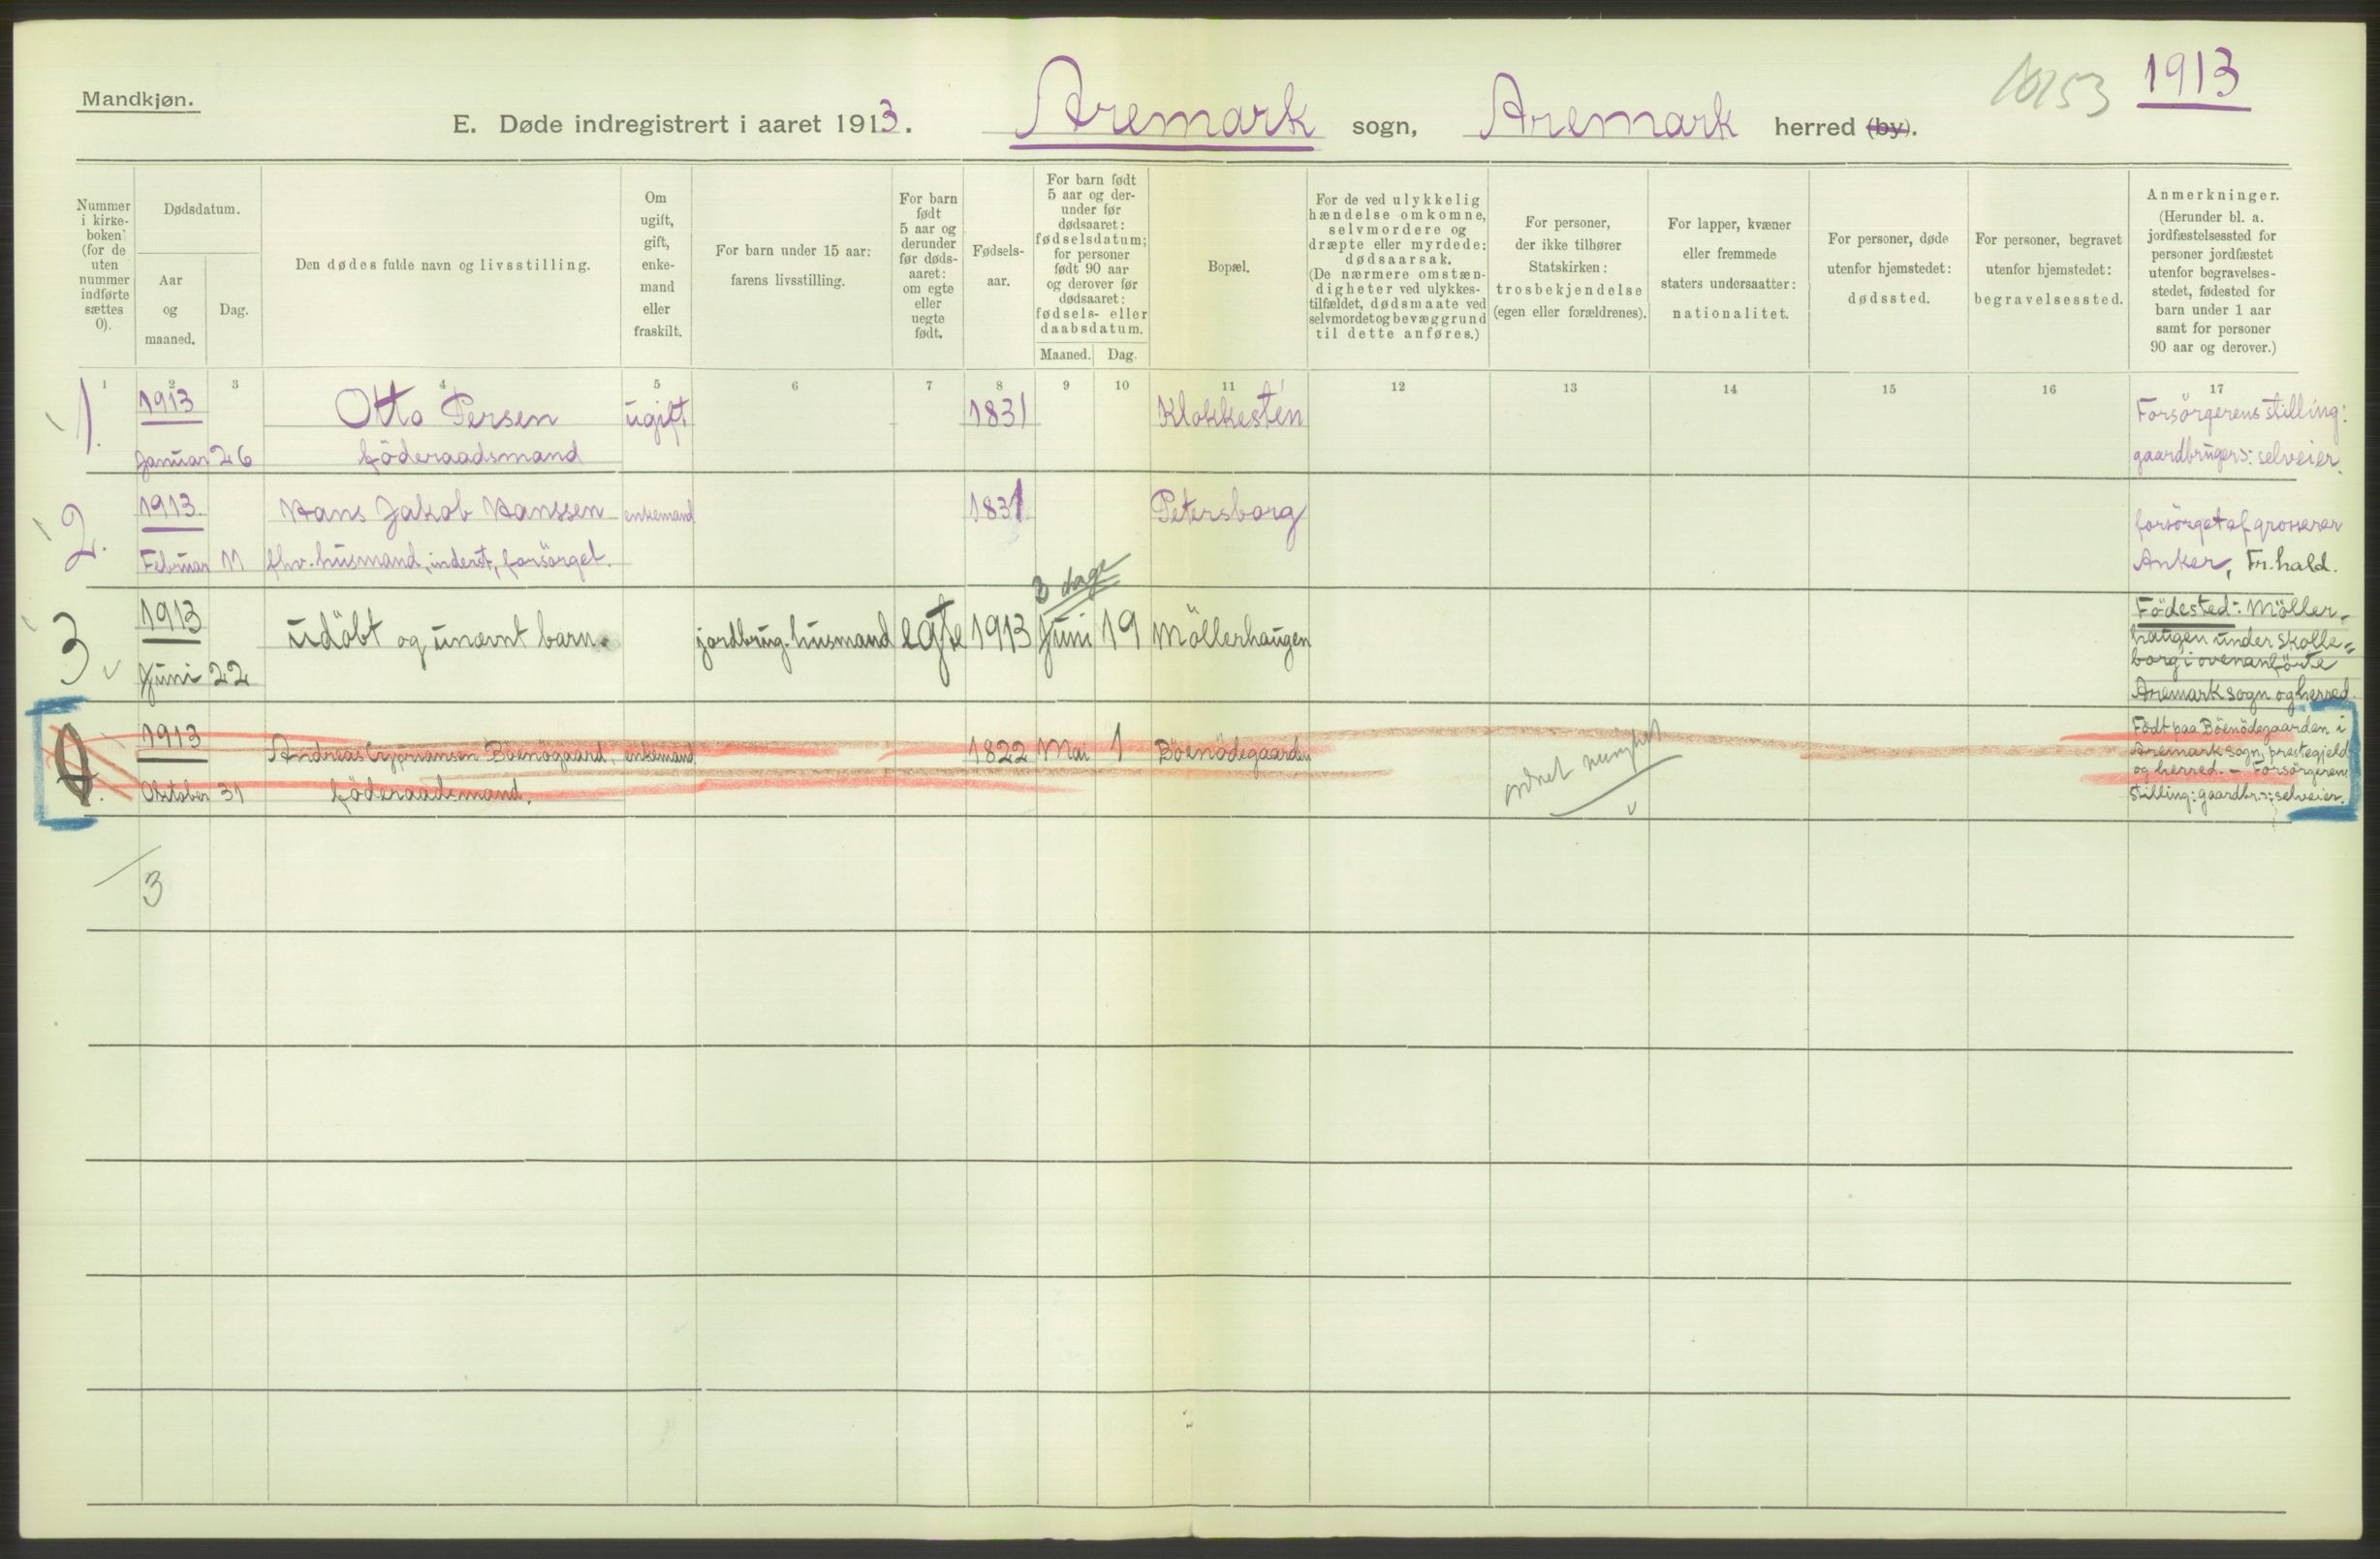 Mandkjøn.
E. Døde indregistrert i aaret 1913. Aremark sogn, Aremark herred (by).
1913
Nummer i kirkeboken (for de uten nummer indførte sættes 0).
Dødsdatum.
Aar og maaned.
Dag.
Den dødes fulde navn og livsstilling.
Om ugift, gift, enkemand eller fraskilt.
For barn under 15 aar: farens livsstilling.
For barn født 5 aar og derunder før dødsaaret: om egte eller uegte født.
Fødselsaar.
For barn født 5 aar og derunder før dødsaaret: fødselsdatum; for personer født 90 aar og derover før dødsaaret: fødsels- eller daabsdatum.
Maaned. Dag.
Bopæl.
For de ved ulykkelig hændelse omkomne, selvmordere og dræpte eller myrdede: dødsaarsak. (De nærmere omstændigheter ved ulykkestilfældet, dødsmaate ved selvmordet og bevæggrund til dette anføres.)
For personer, der ikke tilhører Statskirken: trosbekjendelse (egen eller forældrenes).
For lapper, kvæner eller fremmede staters undersaatter: nationalitet.
For personer, døde utenfor hjemstedet: dødssted.
For personer, begravet utenfor hjemstedet: begravelsessted.
Anmerkninger. (Herunder bl. a. jordfæstelsessted for personer jordfæstet utenfor begravelsesstedet, fødested for barn under 1 aar samt for personer 90 aar og derover.)
1 2 3 4 5 6 7 8 9 10 11 12 13 14 15 16 17
1. 1913 Otto Persen ugift 1831 Klokkestén Forsörgerens stilling:
Januar 26 föderaadsmand gaardbruger: selveier.
2. 1913. Hans Jakob Hanssen enkemand 1831 Petersborg forsörget af grosserer
Februar 11 fhv. husmand, inderst, forsörget. Anker, Fr.hald.
3 dage
3 1913 udöbt og unævnt barn. jordbrug. husmand egte 1913 Juni 19 Möllerhaugen Födested: Möller-
haugen under Skolle=
borg i ovenanförte
Juni 22 Aremark sogn og herred.
1913 Andreas Cypriansen Böenögaard, enkemand 1822 Mai 1 Böenödegaarden Födt paa Böenödegaarden i
Aremark sogn, prestegjeld
og herred. - Forsörgerens
Oktober 31 föderaadsmand. stilling: gaardbr.: selveier.
3